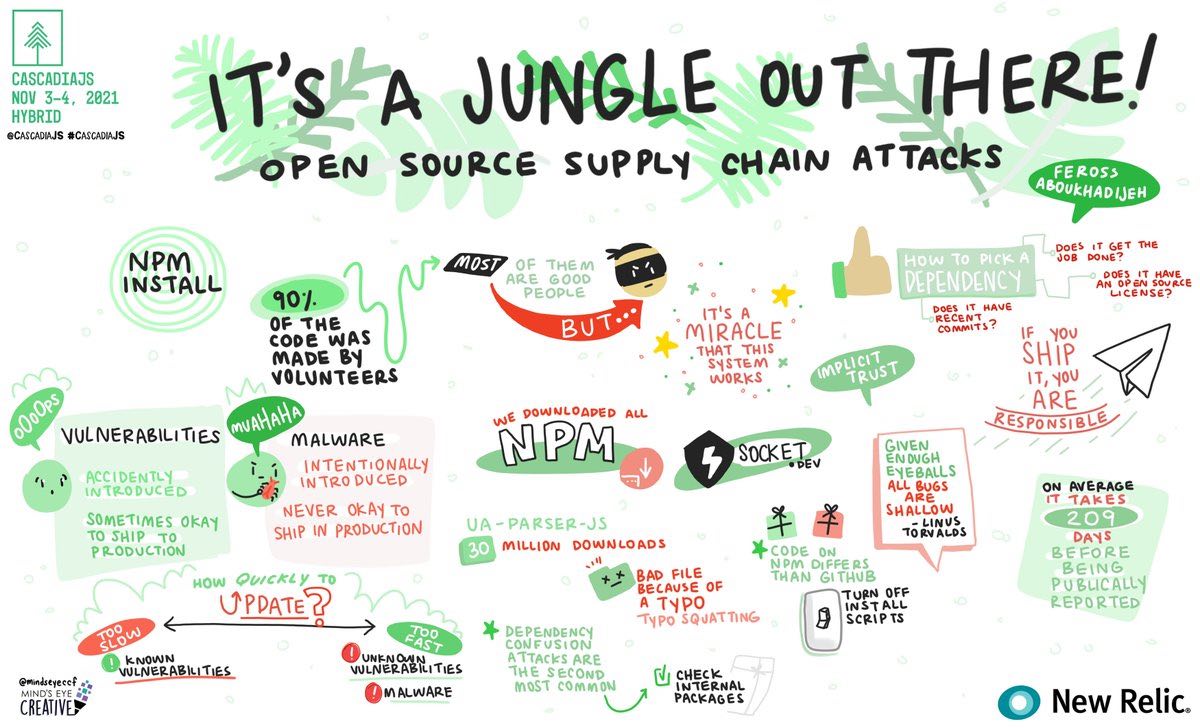 CASCADIAJS
NOV 3-4, 2021
HYBRID
@CASCADIAJS #CASCADIAJS
IT'S A JUNGLE OUT THERE!
OPEN SOURCE SUPPLY CHAIN ATTACKS
FEROSS
ABOUKHADIJEH
NPM
INSTALL
90%
OF THE
CODE WAS
MADE BY
VOLUNTEERS
MOST
OF THEM
ARE GOOD
PEOPLE
BUT...
IT'S A
MIRACLE
THAT THIS
SYSTEM
WORKS
HOW TO PICK A
DEPENDENCY
DOES IT GET THE
JOB DONE?
DOES IT HAVE
AN OPEN SOURCE
LICENSE?
DOES IT HAVE
RECENT
COMMITS?
IMPLICIT
TRUST
IF YOU
SHIP
IT, YOU
ARE
RESPONSIBLE
OOOOPS
VULNERABILITIES
ACCIDENTLY
INTRODUCED
SOMETIMES OKAY
TO SHIP TO
PRODUCTION
MUAHAHA
MALWARE
INTENTIONALLY
INTRODUCED
NEVER OKAY TO
SHIP IN PRODUCTION
WE DOWNLOADED ALL
NPM
SOCKET
.DEV
GIVEN
ENOUGH
EYEBALLS
ALL BUGS
ARE
SHALLOW
- LINUS
TORVALDS
ON AVERAGE
IT TAKES
209
DAYS
BEFORE
BEING
PUBLICALLY
REPORTED
UA-PARSER-JS
30 MILLION DOWNLOADS
BAD FILE
BECAUSE OF
A TYPO
TYPO SQUATTING
CODE ON
NPM DIFFERS
THAN GITHUB
TURN OFF
INSTALL
SCRIPTS
HOW QUICKLY TO
UPDATE?
TOO
SLOW
! KNOWN
VULNERABILITIES
TOO
FAST
! UNKNOWN
VULNERABILITIES
! MALWARE
DEPENDENCY
CONFUSION
ATTACKS ARE
THE SECOND
MOST COMMON
CHECK
INTERNAL
PACKAGES
@mindseyeccf
MIND'S EYE
CREATIVE
New Relic®